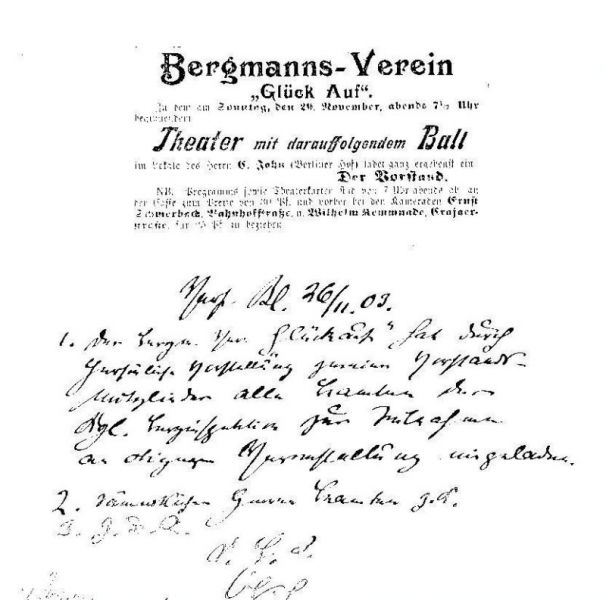 Bergmanns-Verein
„Glück Auf“.
Zu dem am Sonntag, den 29. November, abends 7½ Uhr
beginnenden
Theater mit darauffolgendem Ball
im Lokale des Herrn C. John (Berliner Hof) ladet ganz ergebenst ein
Der Vorstand.
NB. Programms sowie Theaterkarten sind von 7 Uhr abends ab an
der Kasse zum Preise von 30 Pf. und vorher bei den Kameraden Ernst
Bahnhofstraße, u. Wilhelm Kemnade,
straße, für 25 Pf. zu beziehen
Bl. 26/11.03.
1. Der Bergm. Ver. „Glückauf“ hat durch
persönliche Vorstellung zweier Vorstands-
mitglieder alle Beamten der
Kgl. Berginspektion zur Teilnahme
an obiger Veranstaltung eingeladen.
2. Sämmtlichen Herren Beamten z. K.
3. Z. d. A.